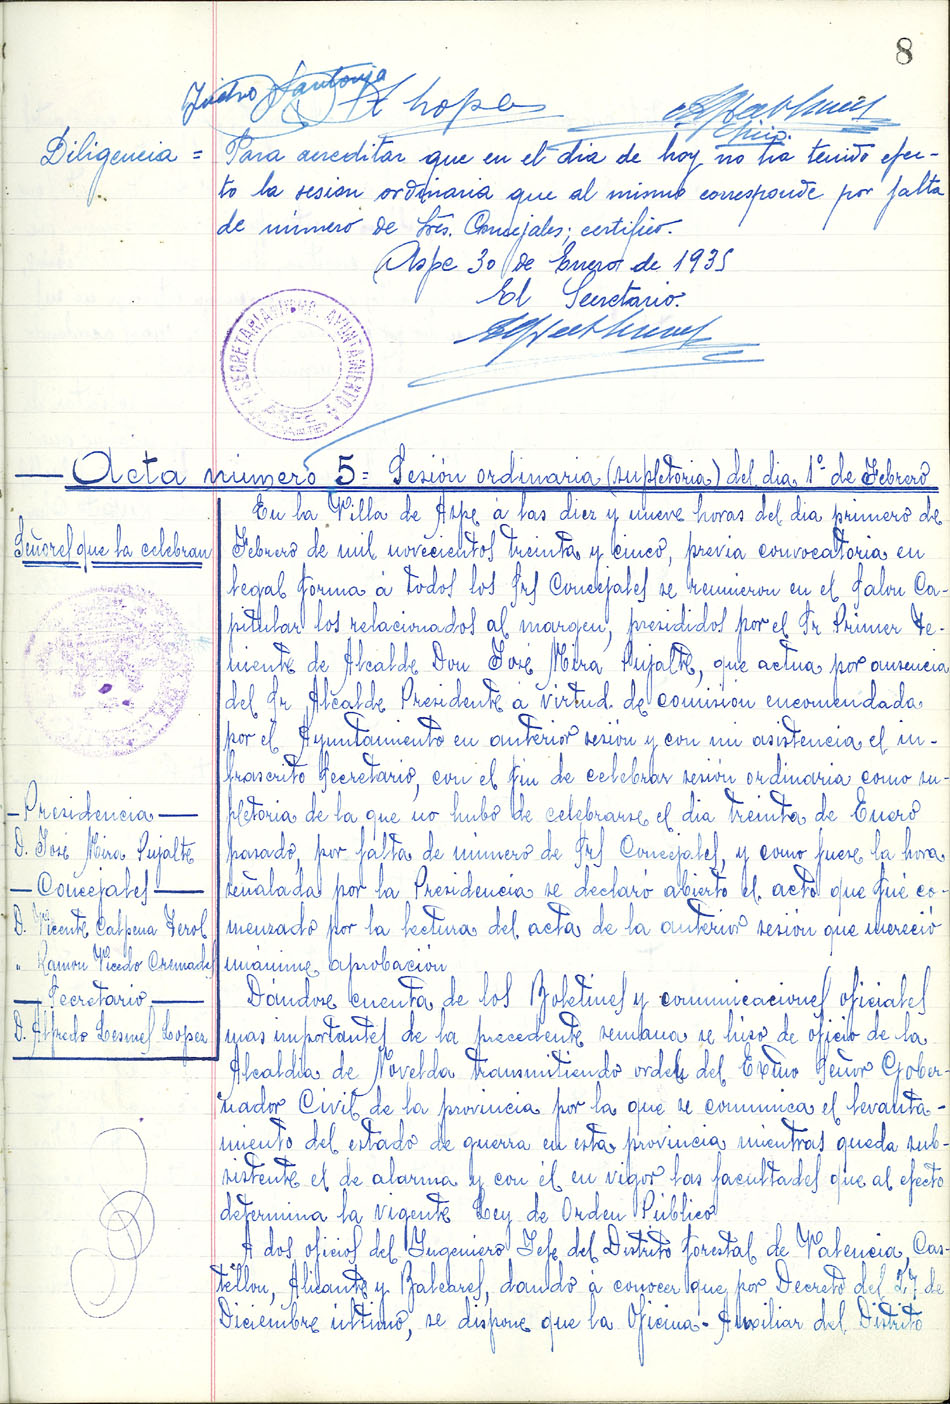 8
Isidro Santonja
A Lopez
Diligencia = Para acreditar que en el dia de hoy no ha tenido efec-
to la sesion ordinaria que al mismo corresponde por falta
de número de Sres. Concejales; certifico.
Aspe 30 de Enero de 1935
El Secretario.
SECRETARIA AYUNTAMIENTO
ASPE
Acta número 5 = Sesión ordinaria (supletoria) del dia 1º de Febrero
Señores que la celebran
Presidencia
D. José Mira Pujalte
Concejales
D. Vicente Calpena Terol
" Ramon Vicedo Cremades
Secretario
D. Alfredo Lesmes Lopez
En la Villa de Aspe á las diez y nueve horas del dia primero de
Febrero de mil novecientos treinta y cinco, previa convocatoria en
legal forma á todos los Srs Concejales se reunieron en el Salon Ca-
pitular los relacionados al margen, presididos por el Sr Primer Te-
niente de Alcalde Don José Mira Pujalte, que actua por ausencia
del Sr Alcalde Presidente á virtud de comisión encomendada
por el Ayuntamiento en anterior sesión y con mi asistencia el in-
frascrito Secretario, con el fin de celebrar sesión ordinaria como su-
pletoria de la que no hubo de celebrarse el dia treinta de Enero
pasado, por falta de número de Srs Concejales, y como fuese la hora
señalada por la Presidencia se declaró abierto el acto que fué co-
menzado por la lectura del acta de la anterior sesión que mereció
unánime aprobación
Dándose cuenta de los Boletines y comunicaciones oficiales
mas importantes de la precedente semana se hiso de oficio de la
Alcaldia de Novelda transmitiendo orden del Exmo Señor Gober-
nador Civil de la provincia por la que se comunica el levanta-
miento del estado de guerra en esta provincia mientras queda sub-
sistente el de alarma y con él en vigor las facultades que al efecto
determina la vigente Ley de Orden Público
A dos oficios del Ingeniero Jefe del Distrito forestal de Valencia, Cas-
tellon, Alicante y Baleares, dando á conocer que por Decreto del 27 de
Diciembre último, se dispone que la Oficina-Auxiliar del Distrito